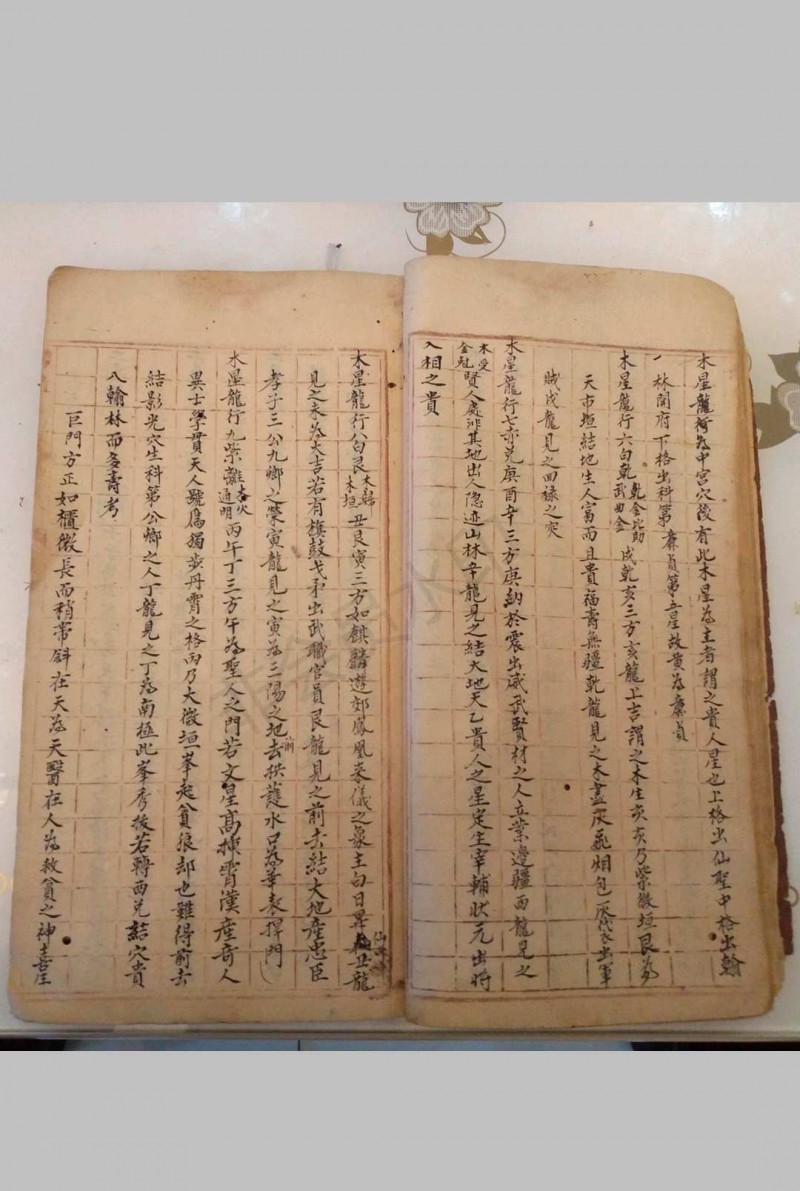 木星龍行為中宮穴後有此木星為主者謂之貴人星也上格出仙聖中格出翰
林閣府下格出科第廉貞第五星故黄為廉貞
木星龍行六白乾乾金比助武曲金戌乾亥三方亥龍上吉謂之木生亥亥乃紫微垣艮為
天市垣結地生人富而且貴福壽無疆乾龍見之木盡灰飛烟包戌出軍
賊戌龍見之回祿之灾
木星龍行七赤兌庚酉辛三方庚納於震出威武賢材之人立業邊疆酉龍見之
木受金尅賢人處非其地出人隐迹山林辛龍見之結大地天乙貴人之星定生宰輔狀元出將
入相之貴
木星龍行八白艮木垣丑艮寅三方如麒麟遊郊鳳凰來儀之象主白日昇丑龍
見之木為大吉若有旗鼓戈矛出武職官員艮龍見之前去結大地產忠臣
孝子三公九卿之榮寅龍見之寅為三陽之地前去拱護水口為華表捍門
木星龍行九紫離木火通明丙午丁三方午為聖人之門若文星高揷霄漢產奇人
異士學貫天人號為獨步丹霄之格丙乃太微垣一峯起貧狼却也難得前去
結影光穴生科第公卿之人丁龍見之丁為南極此峯秀拔若轉酉兌結穴貴
入翰林而多壽考
巨門方正如櫃微長而稍帶斜在天為天醫在人為救貧之神喜居